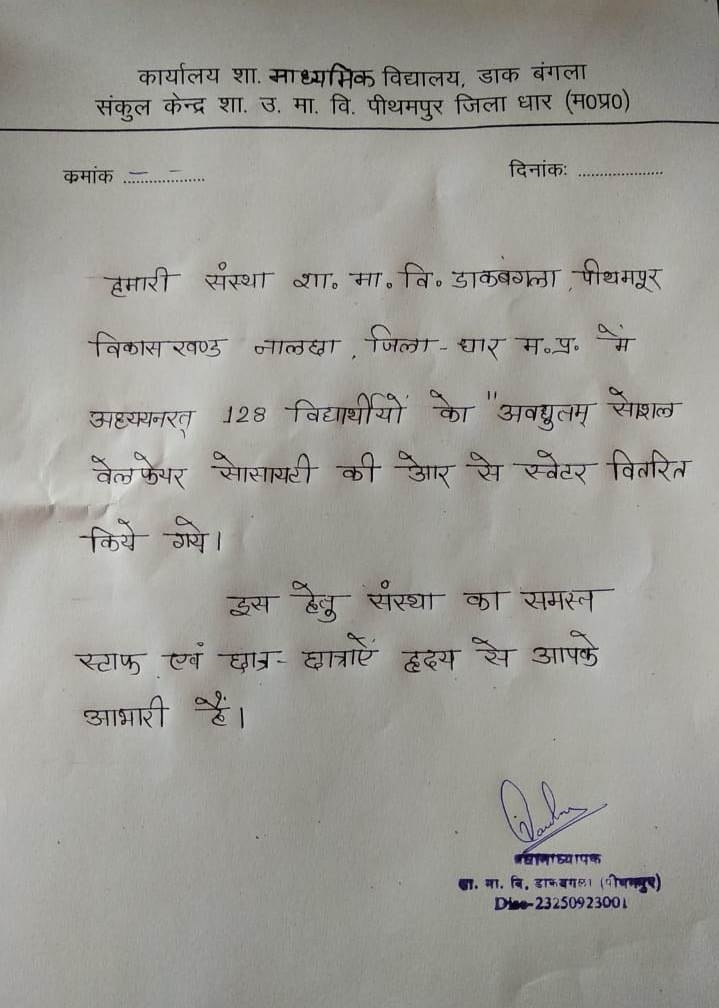 कार्यालय शा. माध्यमिक विद्यालय, डाक बंगला
संकुल केन्द्र शा. उ. मा. वि. पीथमपुर जिला धार (म०प्र०)
कमांक ....................
दिनांकः ....................
हमारी संस्था शा. मा. वि. डाकबंगला, पीथमपूर
विकास खण्ड नालछा, जिला - धार म.प्र. में
अध्ययनरत् 128 विद्यार्थीयों को "अवधुतम् सोशल
वेलफेयर सोसायटी की ओर से स्वेटर वितरित
किये गये।
इस हेतु संस्था का समस्त
स्टाफ एवं छात्र - छात्राऐं हृदय से आपके
आभारी हैं।
प्रधानाध्यापक
शा. मा. वि. डाकबंगला (पीथमपुर)
Dise-23250923001